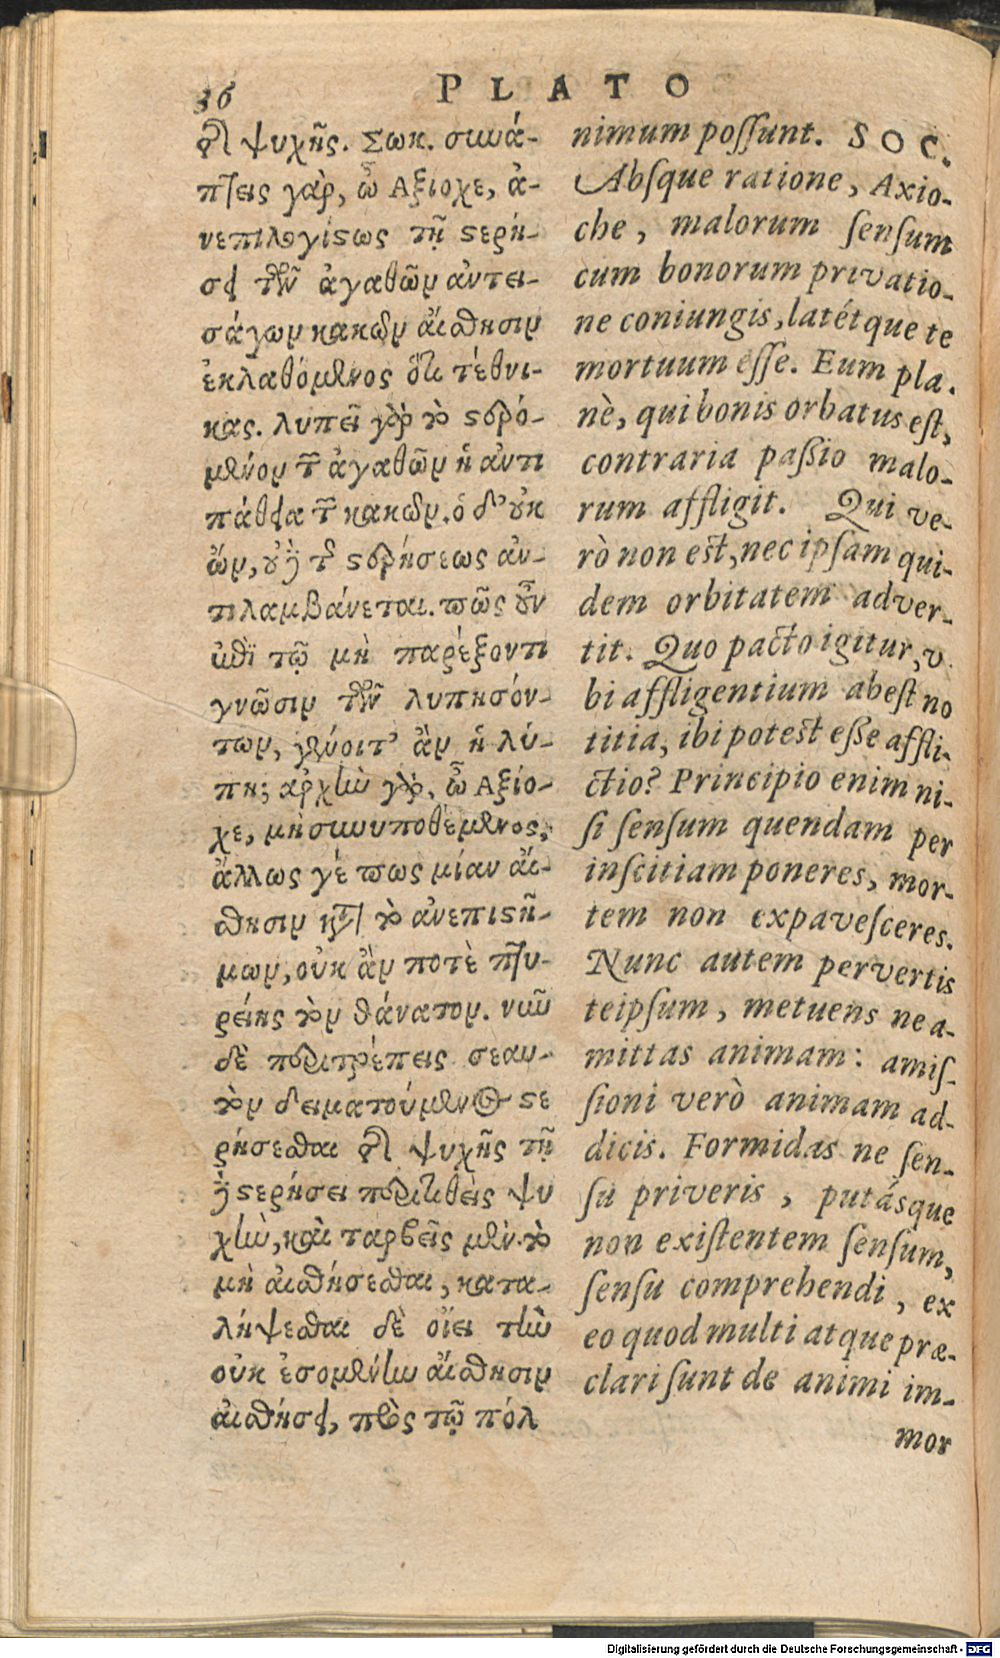 36
PLATO
τῆς ψυχῆς. Σωκ. συνά-
πτεις γὰρ, ὦ Αξίοχε, ἀ-
νεπιλογίστως τῇ στερή-
σει τῶν ἀγαθῶν ἀντει-
σάγων κακῶν αἴσθησιν
ἐκλαθόμενος ὅτι τέθνη-
κας. λυπεῖ γὰρ τὸ στερό-
μενον τῶν ἀγαθῶν ἡ ἀντι
πάθεια τῶν κακῶν. ὁ δ' οὐκ
ὢν, οὐδὲ τῆς στερήσεως ἀν-
τιλαμβάνεται. πῶς οὖν
ἐπὶ τῷ μὴ παρέξοντι
γνῶσιν τῶν λυπησόν-
των, γένοιτ' ἂν ἡ λύ-
πη; ἀρχὴν γὰρ, ὦ Αξίο-
χε, μὴ συνυποθέμενος,
ἄλλως γέ πως μίαν αἴ-
σθησιν κατὰ τὸ ἀνεπιστῆ-
μων, οὐκ ἂν ποτὲ πτυ-
ρείης τὸν θάνατον. νῦν
δὲ περιτρέπεις σεαυ-
τὸν δειματούμενος στε
ρήσεσθαι τῆς ψυχῆς τῇ
δὲ στερήσει περιτιθεὶς ψυ
χὴν, καὶ ταρβεῖς μὲν τὸ
μὴ αἰσθήσεσθαι, κατα-
λήψεσθαι δὲ οἴει τὴν
οὐκ ἐσομένην αἴσθησιν
αἰσθήσει, πρὸς τῷ πόλ
nimum possunt. SOC.
Absque ratione, Axio-
che, malorum sensum
cum bonorum privatio-
ne coniungis, latét que te
mortuum esse. Eum pla.
nè, qui bonis orbatus est,
contraria passio malo-
rum affligit. Qui ve-
rò non est, nec ipsam qui-
dem orbitatem adver-
tit. Quo pacto igitur, v.
bi affligentium abest no
titia, ibi potest esse affli-
ctio? Principio enim ni-
si sensum quendam per
inscitiam poneres, mor-
tem non expavesceres.
Nunc autem pervertis
teipsum, metuens ne a-
mittas animam: amis-
sioni verò animam ad-
dicis. Formidas ne sen-
su priveris, putásque
non existentem sensum,
sensu comprehendi, ex
eo quod multi atque præ-
clari sunt de animi im-
mor
Digitalisierung gefördert durch die Deutsche Forschungsgemeinschaft - DFG